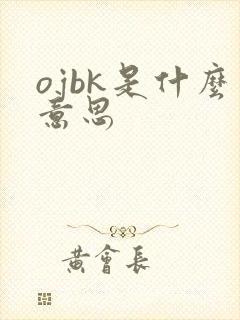 ojbk是什麼
意思
黃會長